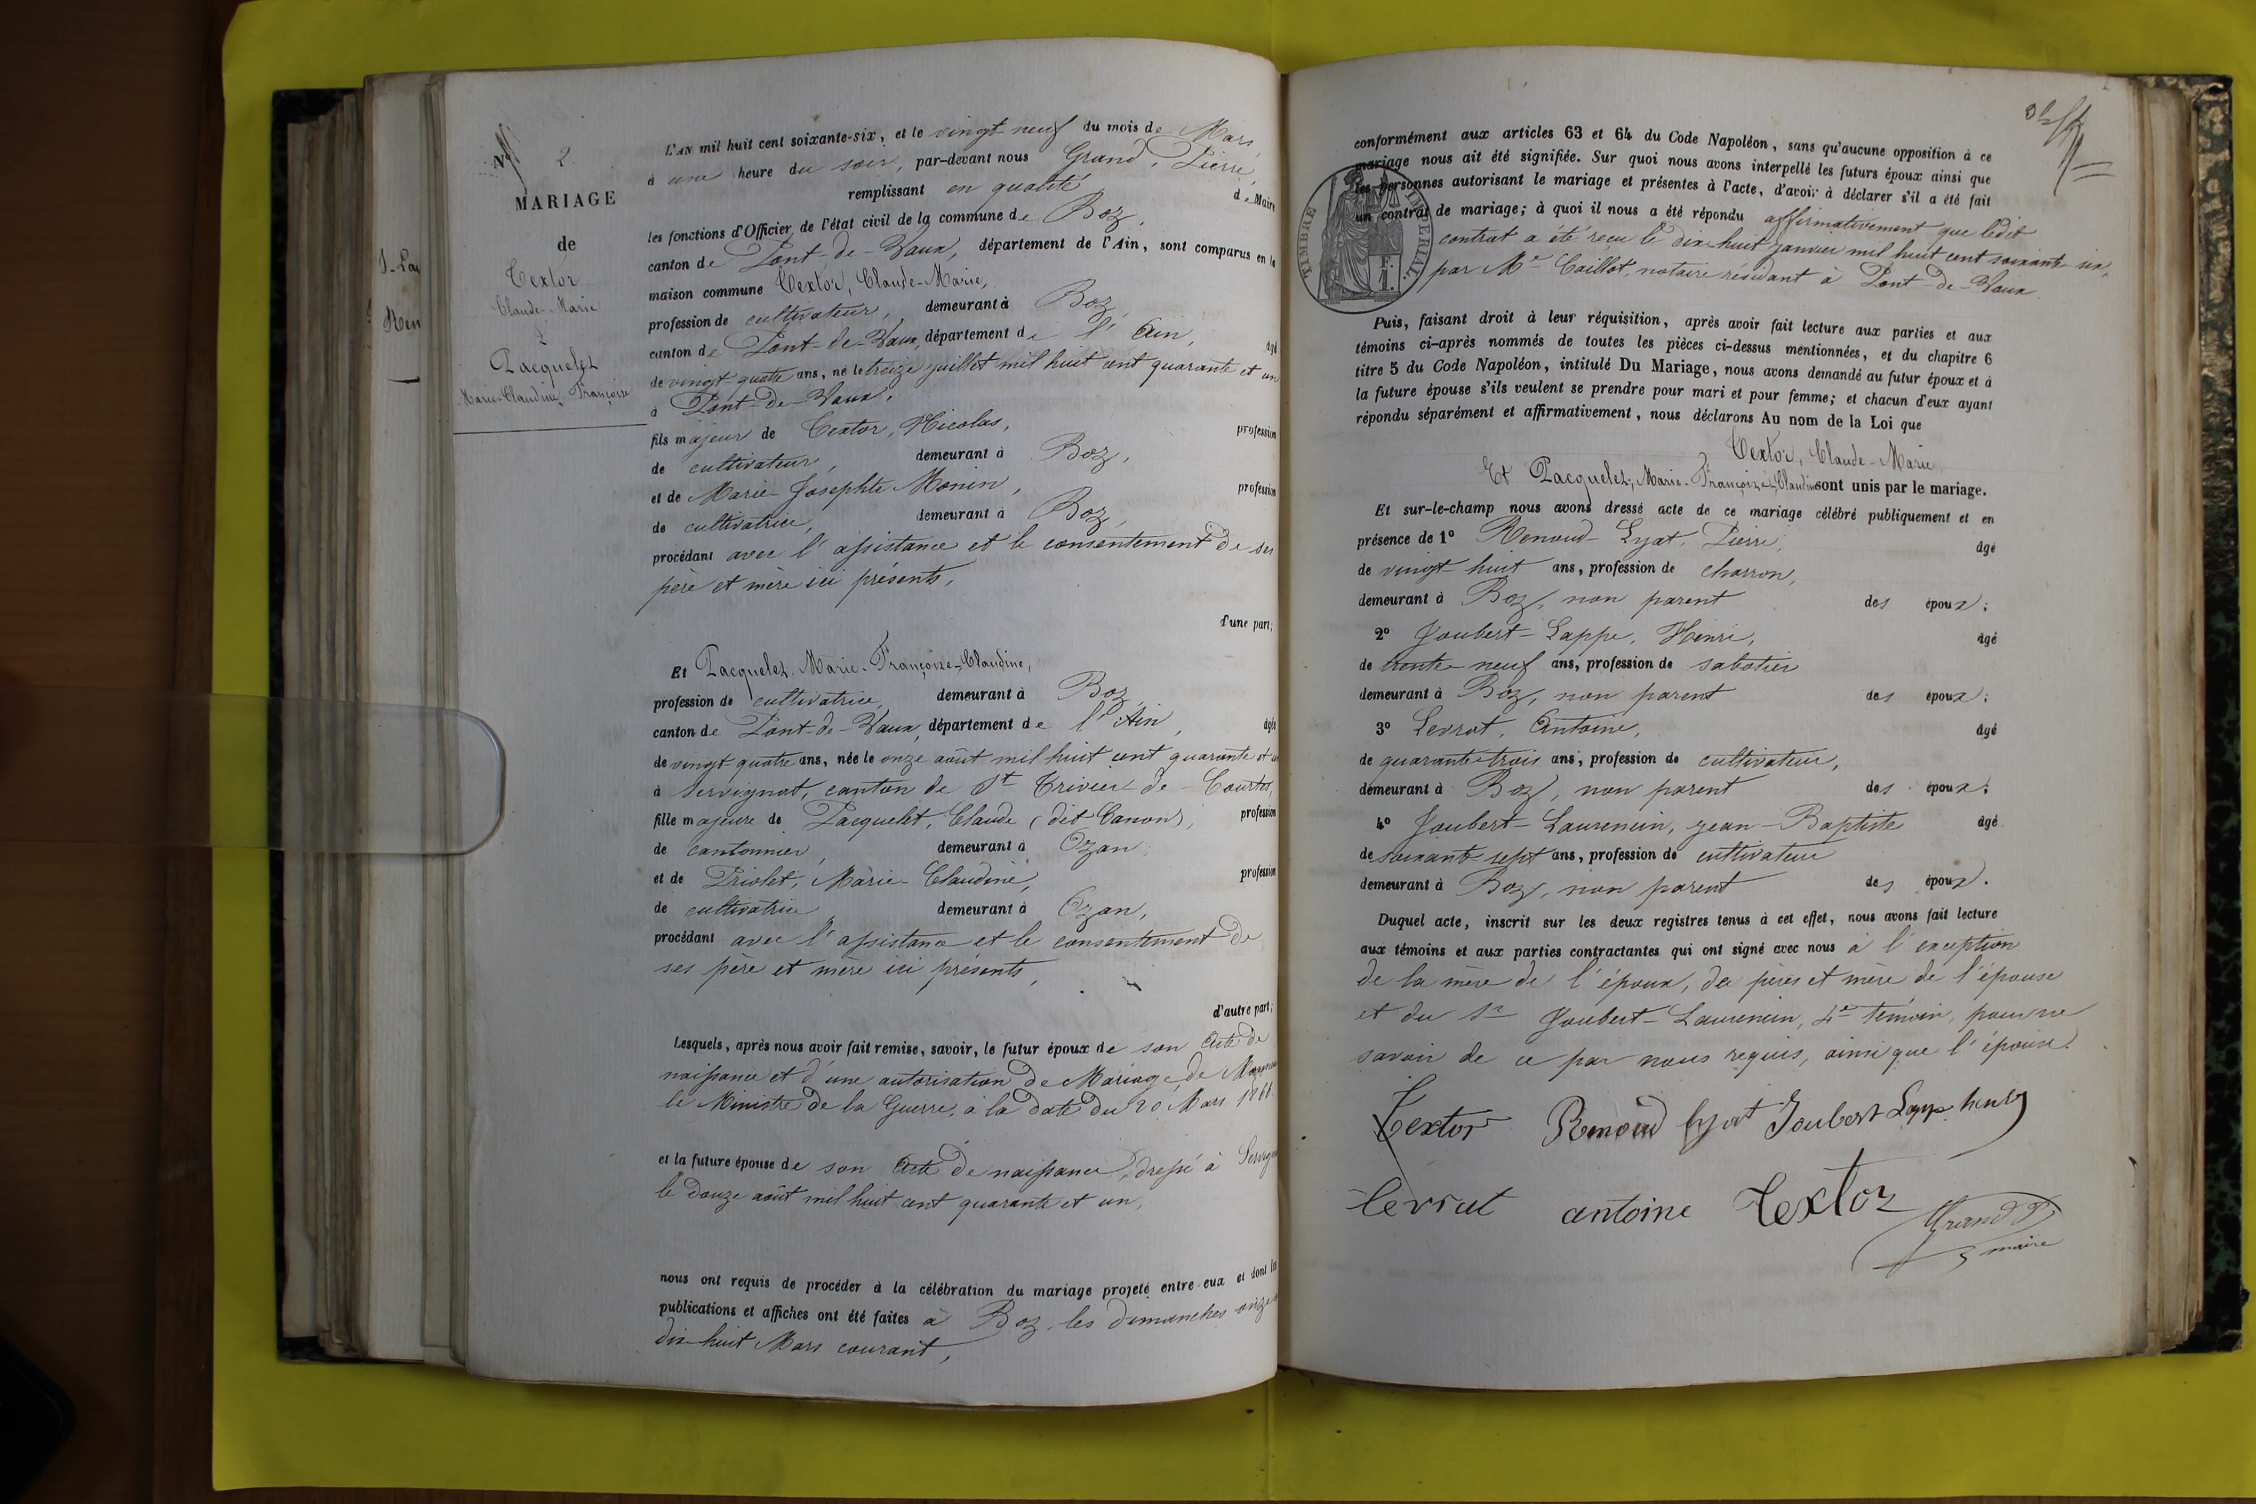 N° 2
MARIAGE
de
Textor
Claude-Marie
&
Pacquelet
Marie-Claudine Françoise
L'AN mil huit cent soixante-six, et le vingt neuf du mois de Mars,
à une heure du soir, par-devant nous Grand, Pierre,
remplissant en qualité de Maire
les fonctions d'Officier de l'état civil de la commune de Boz,
canton de Pont-de-Vaux, département de l'Ain, sont comparus en la
maison commune Textor, Claude-Marie,
profession de cultivateur, demeurant à Boz,
canton de Pont-de-Vaux, département de l'Ain, âgé
de vingt quatre ans, né le treize juillet mil huit cent quarante et un
à Pont-de-Vaux,
fils majeur de Textor, Nicolas, profession
de cultivateur, demeurant à Boz,
et de Marie-Josephte Monin, profession
de cultivatrice, demeurant à Boz,
procédant avec l'assistance et le consentement de ses
père et mère ici présents,
d'une part;
Et Pacquelet, Marie-Françoise-Claudine,
profession de cultivatrice, demeurant à Boz,
canton de Pont-de-Vaux, département de l'Ain, âgée
de vingt quatre ans, née le onze août mil huit cent quarante et un
à Servignat, canton de St Trivier de Courtes,
fille majeure de Pacquelet, Claude (dit Canon), profession
de cantonnier, demeurant à Ozan,
et de Priolet, Marie-Claudine, profession
de cultivatrice demeurant à Ozan,
procédant avec l'assistance et le consentement de
ses père et mère ici présents,
d'autre part;
Lesquels, après nous avoir fait remise, savoir, le futur époux de son acte de
naissance et d'une autorisation de Mariage, de
le Ministre de la Guerre, à la date du 20 Mars 1866
et la future épouse de son acte de naissance, dressé à
le douze août mil huit cent quarante et un,
nous ont requis de procéder à la célébration du mariage projeté entre eux et dont les
publications et affiches ont été faites à Boz, les dimanches onze
dix-huit Mars courant,
conformément aux articles 63 et 64 du Code Napoléon, sans qu'aucune opposition à ce
mariage nous ait été signifiée. Sur quoi nous avons interpellé les futurs époux ainsi que
les personnes autorisant le mariage et présentes à l'acte, d'avoir à déclarer s'il a été fait
un contrat de mariage; à quoi il nous a été répondu affirmativement que ledit
contrat a été reçu le dix-huit janvier mil huit cent soixante six,
par Me Caillot, notaire résidant à Pont-de-Vaux.
TIMBRE IMPERIAL
1 F.
Puis, faisant droit à leur réquisition, après avoir fait lecture aux parties et aux
témoins ci-après nommés de toutes les pièces ci-dessus mentionnées, et du chapitre 6
titre 5 du Code Napoléon, intitulé Du Mariage, nous avons demandé au futur époux et à
la future épouse s'ils veulent se prendre pour mari et pour femme; et chacun d'eux ayant
répondu séparément et affirmativement, nous déclarons Au nom de la Loi que
Textor, Claude-Marie
Et Pacquelet, Marie-Françoise-Claudine sont unis par le mariage.
Et sur-le-champ nous avons dressé acte de ce mariage célébré publiquement et en
présence de 1° Renoud-Lyat, Pierre, âgé
de vingt-huit ans, profession de charron,
demeurant à Boz, non parent des époux;
2° Joubert-Lappe, Henri, âgé
de trente-neuf ans, profession de sabotier
demeurant à Boz, non parent des époux;
3° Levrat, Antoine, âgé
de quarante-trois ans, profession de cultivateur,
demeurant à Boz, non parent des époux;
4° Joubert-Laurencin, Jean-Baptiste âgé
de soixante sept ans, profession de cultivateur
demeurant à Boz, non parent des époux.
Duquel acte, inscrit sur les deux registres tenus à cet effet, nous avons fait lecture
aux témoins et aux parties contractantes qui ont signé avec nous à l'exception
de la mère de l'époux, des père et mère de l'épouse
et du Sr Joubert-Laurencin, 4e témoin, pour ne
savoir de ce par nous requis, ainsi que l'épouse.
Textor Renoud lyat Joubert Lapp henry
levrat antoine Textor Grand P
maire